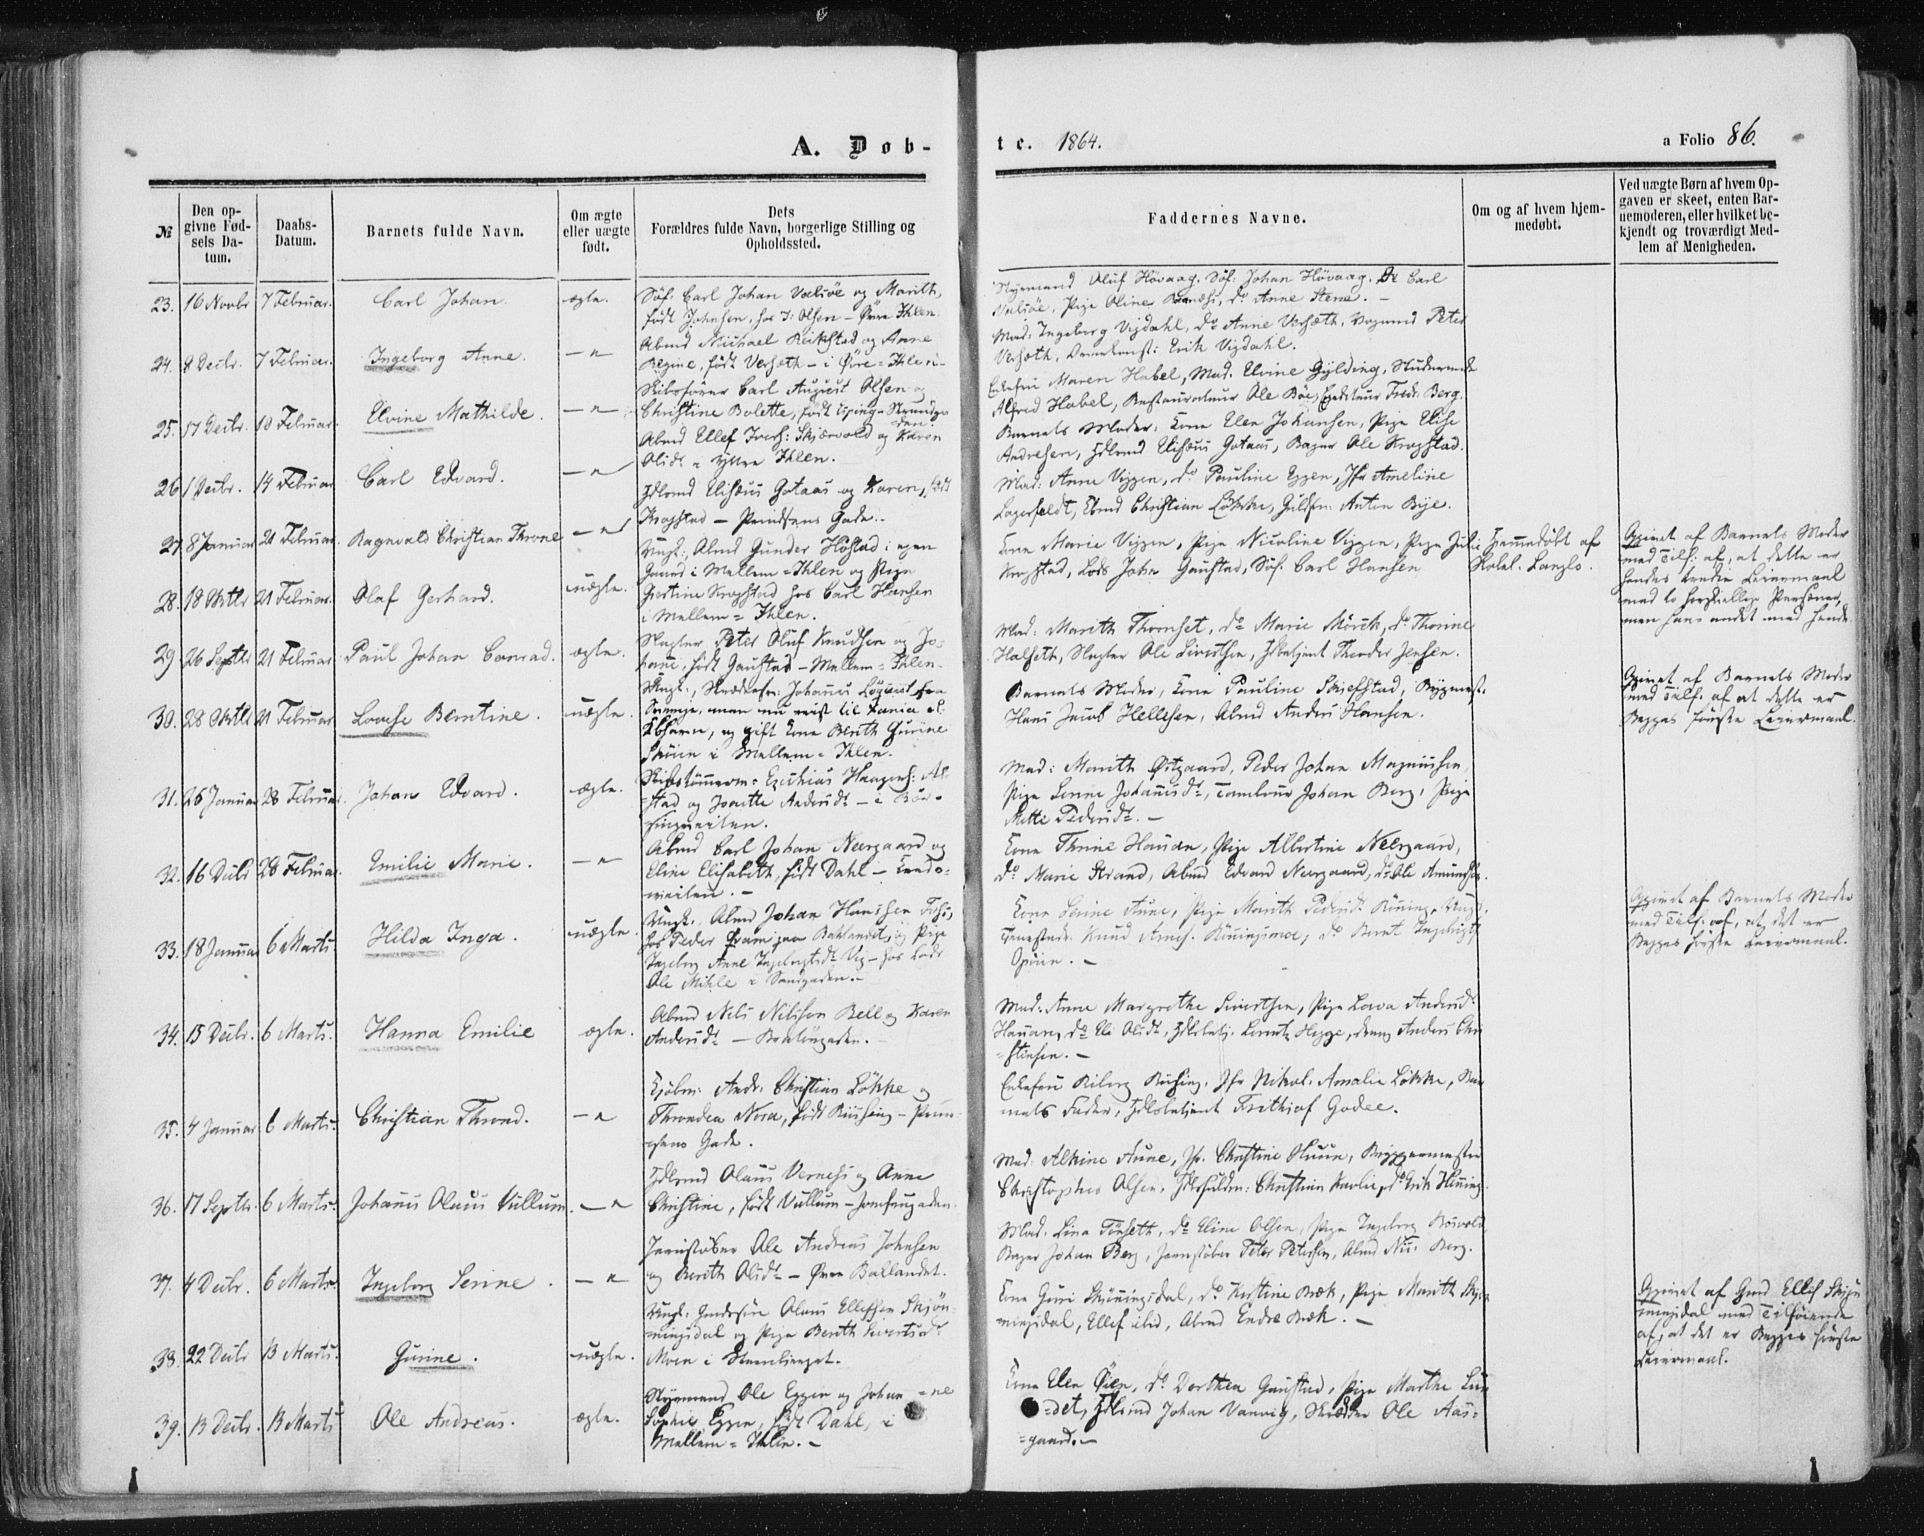 A. Døb-
te. 1864.
a Folio 86.
№
Den op-
givne Fød-
sels Da-
tum.
Daabs-
Datum.
Barnets fulde Navn.
Om ægte
eller uægte
født.
Dets
Forældres fulde Navn, borgerlige Stilling og
Opholdssted.
Faddernes Navne.
Om og af hvem hjem-
medøbt.
Ved uægte Børn af hvem Op-
gaven er skeet, enten Bar-
nemoderen, eller hvilket be-
kjendt og troværdigt Med-
lem af Menigheden.
23. 16 Novbr 7 Februar. Carl Johan. ægte.
Søf. Carl Johan Valsøe og Marith,
født Johnsen, hos J: Olsen – Øvre Ihlen.
Styrmand Oluf Hövaag. Söf: Johan Hövaag. Do Carl
Valsöe, Pige Oline, do Anne Stene. –
24. 8 Decbr. 7 Februar. Ingeborg Anne. – " –
Abmd Michael Reikstad og Anne
Regine, født Verseth – i Øvre = Ihlen –
Mad: Ingeborg Vigdahl, do Anne Verseth, Vognmd Peter
Verseth, Erik Vigdahl.
25. 17 Decbr. 10 Februar. Elvine Mathilde. – " –
Skibsfører Carl August Olsen og
Christine Bolette, født Eping – Strandga
den.
Enkefru Maren Habel, Mad. Elvine Gylding, Student
Alfred Habel, Restaurateur Ole Böe, Expediteur Fredr. Berg.
26. 1 Decbr. 14 Februar Carl Edvard. – " –
Abmd Ellef Ivers: Skjærvold og Karen
Olsdr – Yttre Ihlen.
Barnets Moder, Kone Elen Johansen, Pige Elise
Andresen, Hdlsmd Elisæus Gotaas, Bager Ole Krogstad.
27. 8 Januar 21 Februar. Ragnvald Christian Throne – " –
Hdlsmd Elisæus Gotaas og Karen, født
Krogstad – Prindsens Gade.
Mad: Anne Viggen, do Pauline Eggen, Jfr Ameline
Lagerfeldt, Christian Lökke, Anton Bye.
28. 18 Oktbr 21 Februar. Olaf Gerhard. uægte.
Ungk: Abmd Gunder Hofstad i egen
Gaard i Mellem = Ihlen og Pige
Gjertine Krogstad hos Carl Hansen
i Mellem = Ihlen.
Kone Marie Viggen, Pige Nicoline Viggen, Pige Julie
Krogstad, Lods John Gaustad, Söf. Carl Hansen
Hjemmedøbt af
Kolal. Langlo.
Opgivet af Barnets Moder
med Tilf: af, at dette er
hendes tredie Leiermaal
med to forskjellige Personer,
men hans andet med hende.
29 26 Septbr 21 Februar Paul Johan Conrad. ægte.
Slagter Peter Oluf Knudsen og Jo-
hane, født Gaustad – Mellem = Ihlen.
Mad: Marith Thronset, do Marie Mörck, do Thorine
Halseth, Slagter Ole Sivertsen, Hdlsbetjent Theodor Jensen.
30. 28 Oktbr 21 Februar Lovise Berntine. uægte.
Ungk., Johannes Løgent fra
Sverige, men nu reist til
Kbhavn, og gift Kone Berith Gurine
i Mellem = Ihlen.
Barnets Moder, Kone Pauline, Bygmest.
Hans Jacob Hellesen, Abmd Anders Hansen.
Opgivet af Barnets Moder
med Tilf: af at dette er
Begges første Leiermaal.
31. 26 Januar 28 Februar. Johan Edvard. ægte.
Skibstömmerm: Ezechias Haagens: Al-
stad og Jonette Andersdr –
Mad: Marith Østgaard, Peder Johan Magnussen,
Pige Lerine Johannesdr, Tambour Johan Berg, Pige
Mette Pedersdr. –
32. 16 Decbr 28 Februar. Emilie Marie. – " –
Abmd Carl Johan Neergaard og
Eline Elisabeth, født Dahl –
Kone Thrine Hansen, Pige Albertine Neergaard,
do Marie Strand, Abmd Edvard Neergaard, do Ole Amundsen.
33. 18 Januar 6 Marts. Hilda Inga. uægte.
Ungk., Abmd Johan Hanssen Foss,
hos Peder Baklandet, og Pige
Ingeborg Anne Ingebrigtsdr Vig – hos Lods
Ole Mihle i Sandgaden. –
Kone Serine Aune, Pige Marith Pedersdr Röning, Ungk.
Knud Arnes. Röningsmoe, do Bernt Ingebrigts:
Opöien. –
Opgivet af Barnets Moder
med Tilf: af, at det er
Begges første Leiermaal.
34. 15 Decbr. 6 Marts. Hanna Emilie ægte.
Abmd Nils Nilssen Rell og Karen
Andersdr –
Mad: Anne Margrethe Sivertsen, Pige Lova Andersdr
Hanares, do Eli Olsdr, Hdlsbetj. Lorentz Hegge, Dreng Anders Chri-
= stiansen. –
35. 4 Januar 6 Marts. Christian Thrond. – " –
Kjøbm: Andr. Christian Lökke og
Throndea Nora, født Riissing – Prin-
sens Gade.
Enkefru Riborg Riissing, Jfr Nikol. Amalie Lökke, Bar-
nets Fader, Hdlsbetjent Frithiof Godee.
36. 17 Septbr. 6 Marts. Johannes Olaus Vullum. – " –
Hdlsmd Olaus Verness og Anne
Christine, født Vullum – Jomfrugaden.
Mad: Alkine Aune, Jfr. Christine Huun, Byggermester
Christopher Olsen, Hdlsfuldm: Christian Kavli, do Erik Henning
37. 4 Decbr. 6 Marts. Ingeborg Serine. – " –
Jernstøber Ole Andreas Johnsen
og Berith Olsdr – Øvre Ballandet.
Mad. Lina Tönseth, do Eline Olsen, Pige Ingeborg Rösvold
Bager Johan Berg, Jernstøber Peter Petersen, Abmd Nils Berg.
38. 22 Decbr 13 Marts. Gurine. uægte.
Ungk. Olaus Ellefsen Skjön-
ningsdal og Pige Berith Sivertsdr
Moen i Steenbjerget.
Kone Guri Skjönningsdal, do Kirstine Bæk, Pige Marith Skjön-
ningsdal, Ellef ibid, Abmd Endre Bæk. –
Opgivet af Gmd Ellef Skjön-
ningsdal med Tilföiende
af, at det er Begges første
Leiermaal.
39. 13 Decbr. 13 Marts Ole Andreas. ægte.
Styrmand Ole Eggen og Johan = ne
Sophie Eggen, født Dahl, i
Mellem = Ihlen. –
Kone Elen Øien, do Dorthea Gaustad, Pige Marthe Lun-
= det, Hdlsmd Johan Vanvig, Skrædder Ole Aas-
= gaard. –